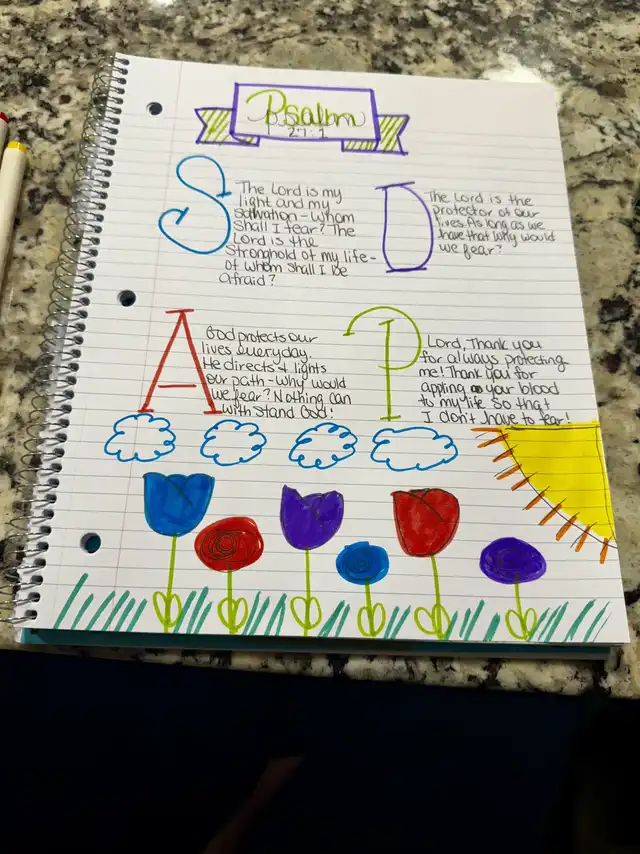 Psalm
27:1
S
The Lord is my
light and my
salvation - whom
shall I fear? The
Lord is the
stronghold of my life -
of whom shall I be
afraid?
D
The Lord is the
protector of our
lives. As long as we
have that why would
we fear?
A
God protects our
lives everyday.
He directs & lights
our path - why would
we fear? Nothing can
withstand God!
P
Lord, Thank you
for always protecting
me! Thank you for
appling your blood
to my life so that
I don't have to fear!